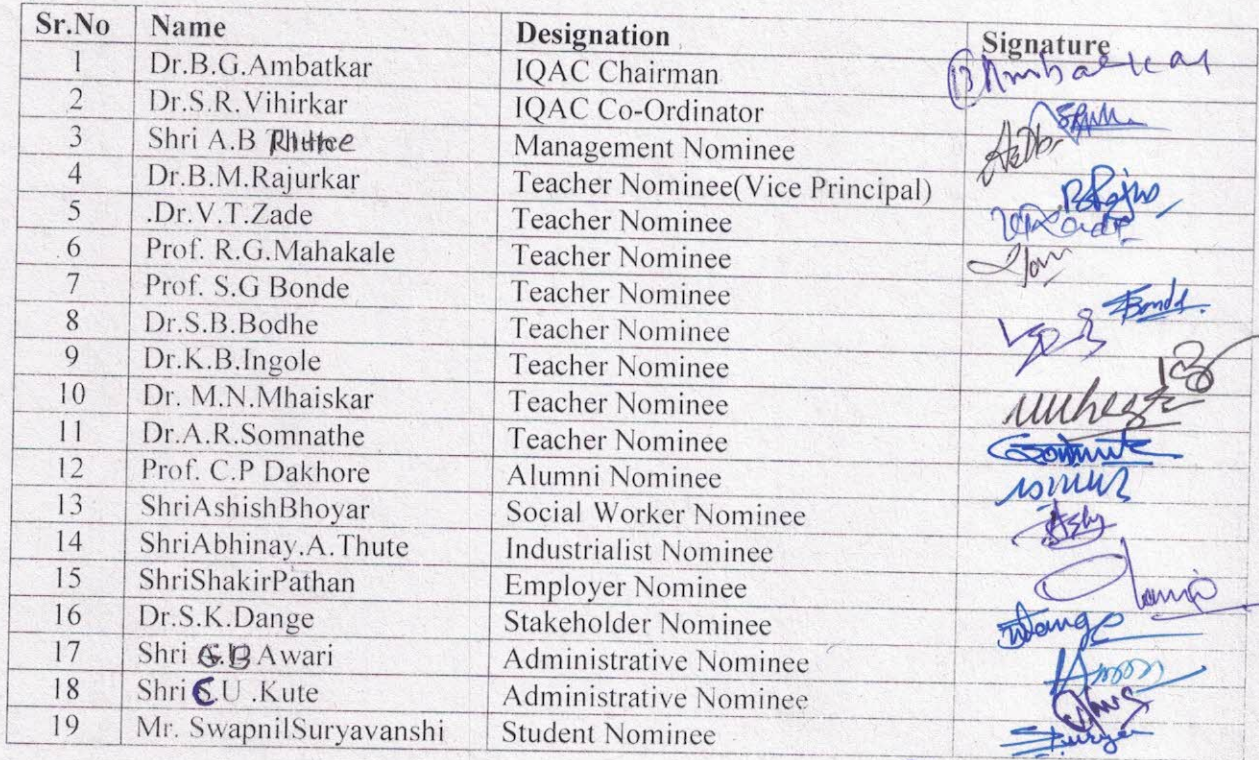 Sr.No Name Designation Signature
1 Dr.B.G.Ambatkar IQAC Chairman Ambatkar
2 Dr.S.R.Vihirkar IQAC Co-Ordinator
3 Shri A.B Management Nominee
4 Dr.B.M.Rajurkar Teacher Nominee(Vice Principal)
5 .Dr.V.T.Zade Teacher Nominee
6 Prof. R.G.Mahakale Teacher Nominee
7 Prof. S.G Bonde Teacher Nominee
8 Dr.S.B.Bodhe Teacher Nominee
9 Dr.K.B.Ingole Teacher Nominee
10 Dr. M.N.Mhaiskar Teacher Nominee
11 Dr.A.R.Somnathe Teacher Nominee
12 Prof. C.P Dakhore Alumni Nominee
13 ShriAshishBhoyar Social Worker Nominee
14 ShriAbhinay.A.Thute Industrialist Nominee
15 ShriShakirPathan Employer Nominee
16 Dr.S.K.Dange Stakeholder Nominee
17 Shri Awari Administrative Nominee
18 Shri .U .Kute Administrative Nominee
19 Mr. SwapnilSuryavanshi Student Nominee